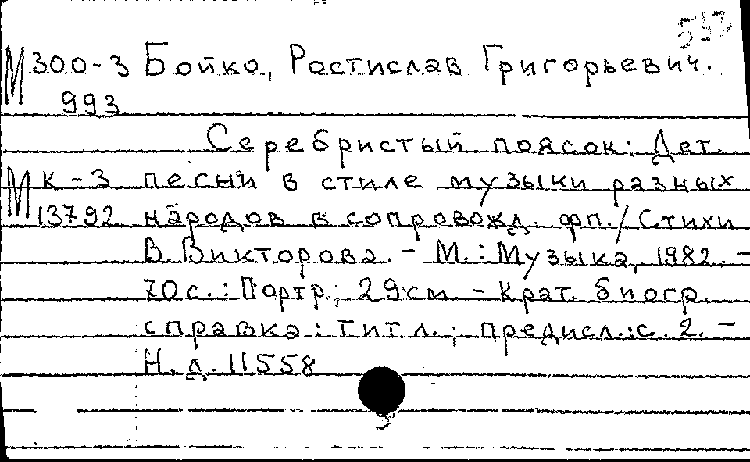 593
М 300-3 Бойко, Ростислав Григорьевич.
993
Серебристый поясок: Дет.
М к-3 песни в стиле музыки разных
13792 народов в сопровожд. фп./Стихи
В. Викторова. - М.: Музыка, 1982. -
70с.: Портр.; 29см. - Крат. биогр.
справка: тит. л.; предисл.: с. 2. -
Н.д. 11558